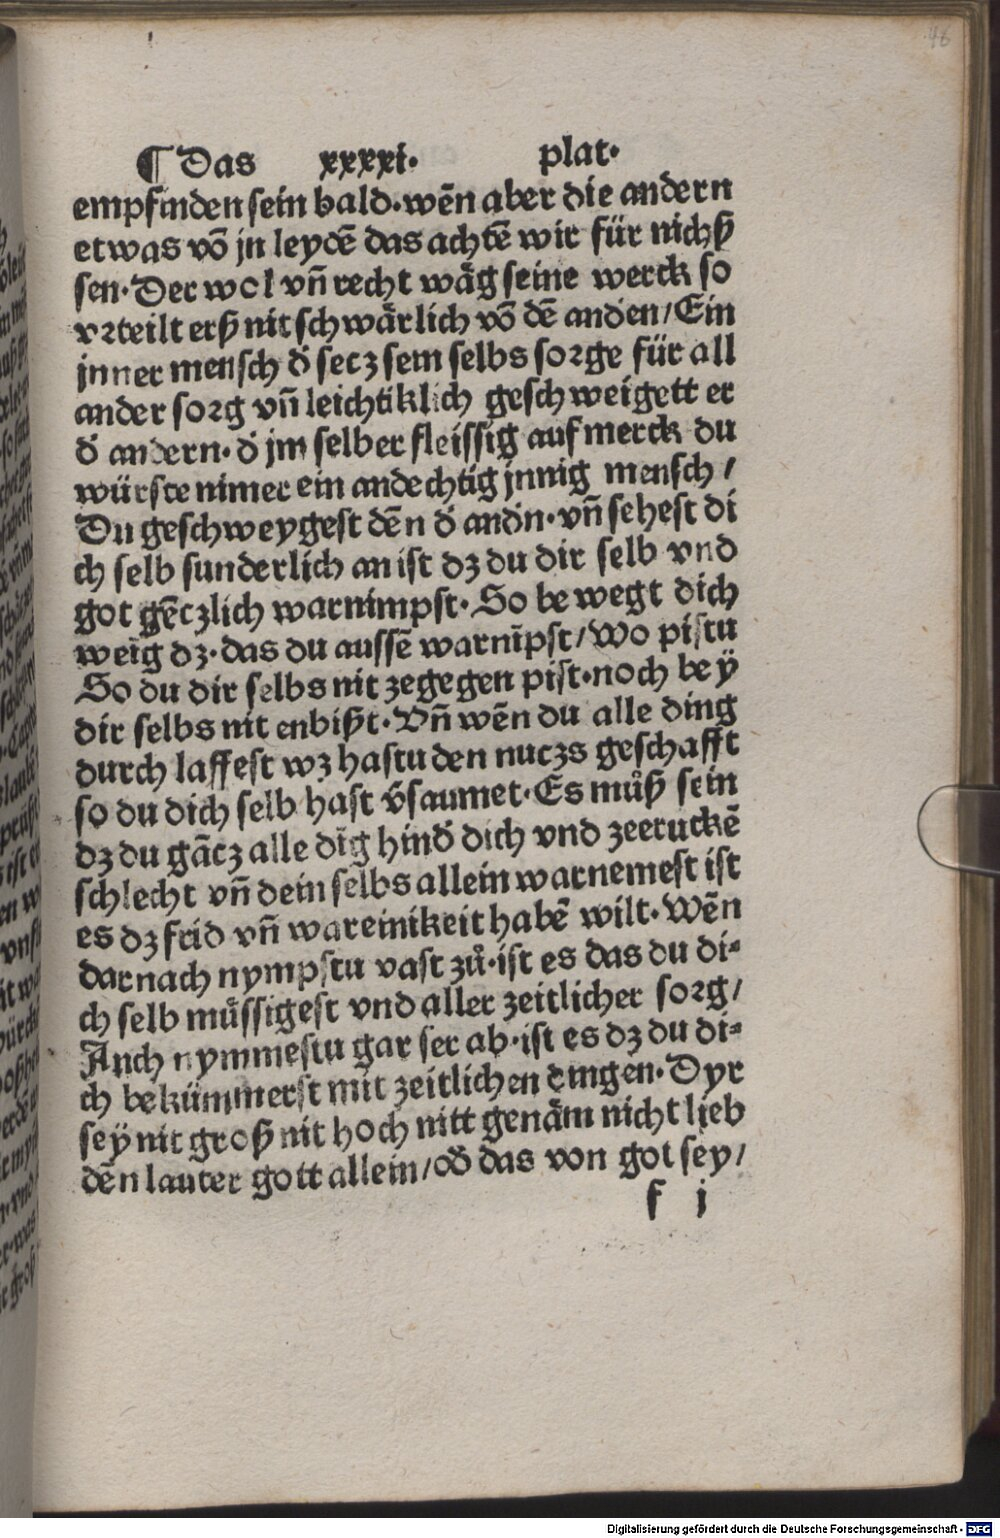 48
¶ Das xxxxi· plat·
empfinden sein bald·wēn aber die andern
etwas vō jn leydē das achtē wir für nichß
sen·Der wol vñ recht wäg seine werck so
vrteilt erß nit schwärlich vō dē anden/Ein
jnner mensch d̕ secz sein selbs sorge für all
ander sorg vñ leichtiklich geschweigett er
d̕ andern·d̕ jm selber fleissig aufmerck du
würste nimer ein andechtig jnnig mensch/
Du geschweygest dēn d̕ andn̄·vñ sehest di
ch selb sunderlich an ist dz du dir selb vnd
got gēczlich warnimpst·So bewegt dich
weīg dz·das du aussē warnīpst/Wo pistu
So du dir selbs nit zegegen pist·noch beÿ
dir selbs nit enbißt·Vñ wēn du alle ding
durch laffest wz hastu den nuczs geschafft
so du dich selb hast v̕saumet·Es můß sein
dz du gācz alle dīg hind̕ dich vnd zeeruckē
schlecht vñ dein selbs allein warnemest ist
es dz frid vñ wareinikeit habē wilt·Wēn
darnach nympstu vast zů·ist es das du di⸗
ch selb müssigest vnd aller zeitlicher sorg/
Auch nymmestu gar ser ab·ist es dz du di⸗
ch bekümmerst mit zeitlichen dingen·Dyr
seÿ nit groß nit hoch nitt genäm nicht lieb
dēn lauter gott allein/od̕ das von got sey/
f j
Digitalisierung gefördert durch die Deutsche Forschungsgemeinschaft · DFG